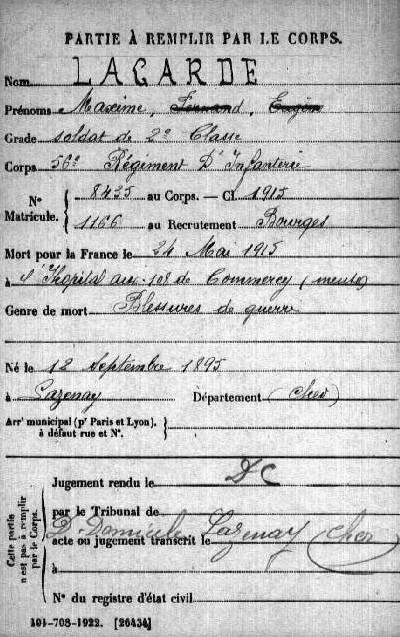 PARTIE À REMPLIR PAR LE CORPS.
Nom LAGARDE
Prénoms Maxime, Fernand, Eugène
Grade soldat de 2e Classe
Corps 56e Régiment D'Infanterie
N° Matricule. { 8435 au Corps. — Cl. 1915
1166 au Recrutement Bourges
Mort pour la France le 24 Mai 1915
à l'Hopital aux. de Commercy (meuse)
Genre de mort Blessures de guerre
Né le 12 Septembre 1895
à Lazenay Département (Cher)
Arrt municipal (pr Paris et Lyon), à défaut rue et N°. }
Cette partie n'est pas à remplir par le Corps.
Jugement rendu le DC
par le Tribunal de
D Domicile Lazenay (Cher
acte ou jugement transcrit le
à
N° du registre d'état civil
101-708-1922. [26434]